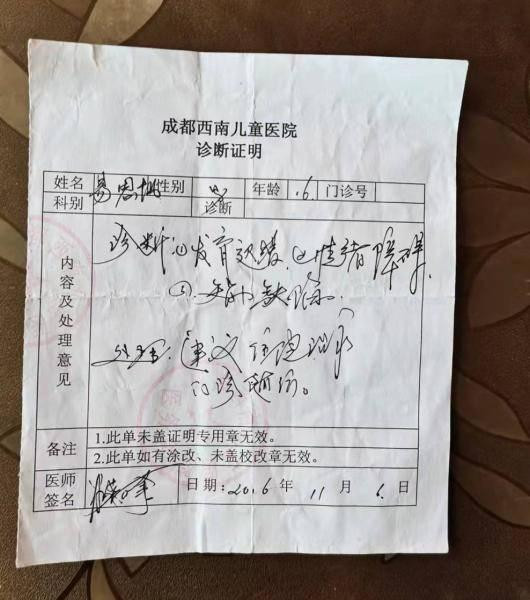 成都西南儿童医院
诊断证明
姓名 性别 年龄 6 门诊号
科别 诊断
内容及处理意见
诊断:① 发育迟缓 ② 情绪障碍
③ 缺陷
处理:建议住院
门诊随访。
备注 1.此单未盖证明专用章无效。
2.此单如有涂改、未盖校改章无效。
医师签名 日期:2016 年 11 月 6 日